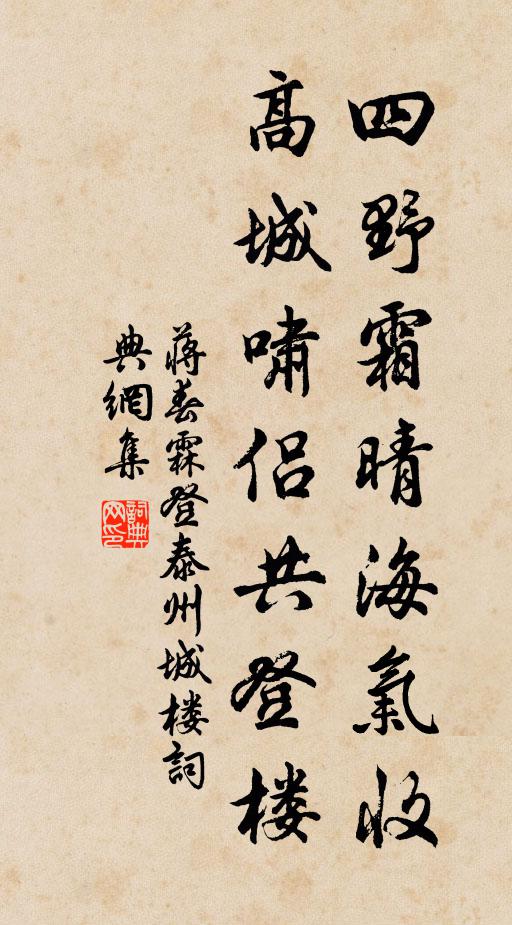 四野霜晴海氣收
高城嘯侣共登楼
蔣春霖登泰州城楼詞
典網集
詞典网印